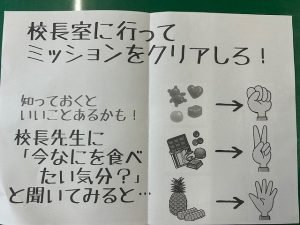 校長室に行って
ミッションをクリアしろ！
知っておくと
いいことあるかも！
校長先生に
「今なにを食べ
たい気分？」
と聞いてみると…